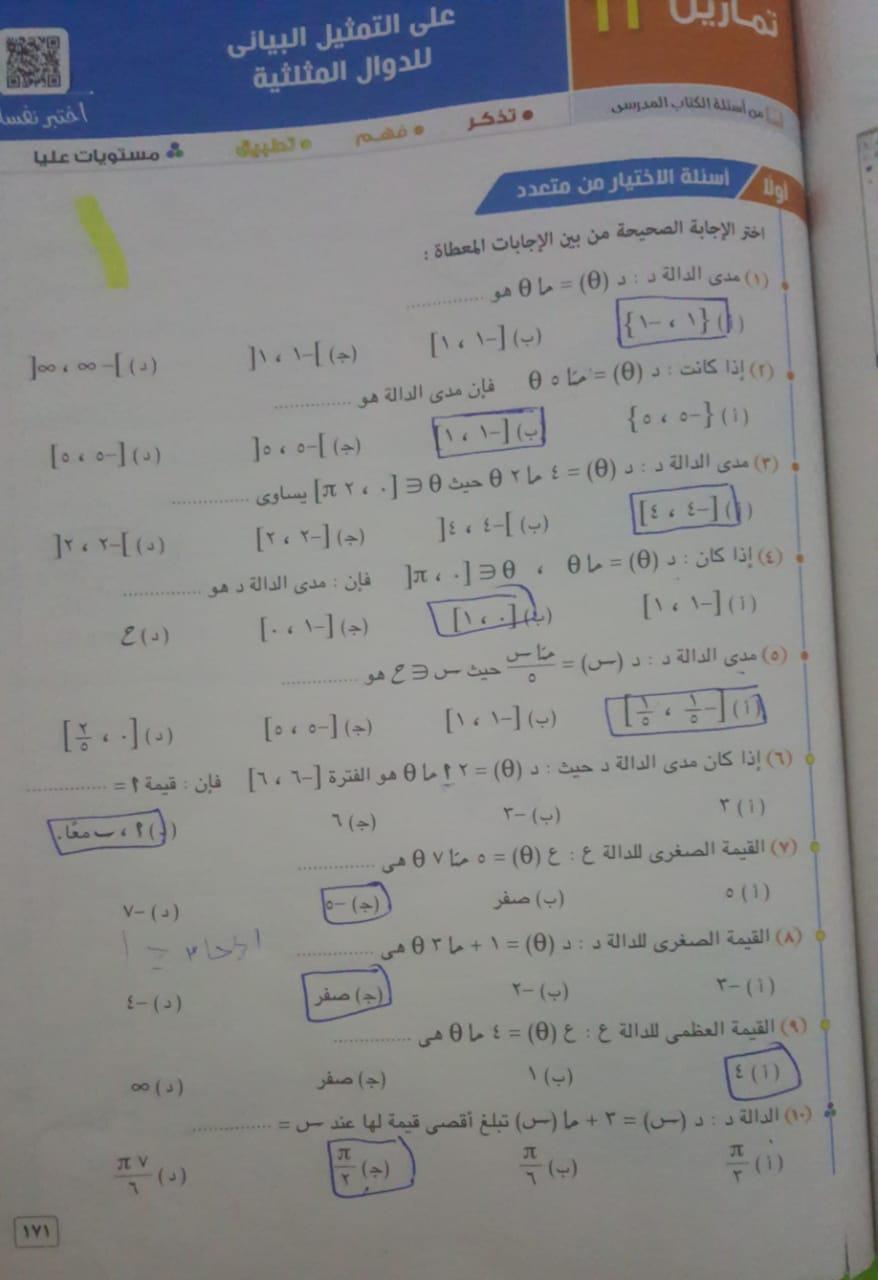 تمارين ١١
على التمثيل البيانى
للدوال المثلثية
اختبر نفسك
من أسئلة الكتاب المدرسى
• تذكر • فهم • تطبيق مستويات عليا
أولًا أسئلة الاختيار من متعدد
١
اختر الإجابة الصحيحة من بين الإجابات المعطاة :
(١) مدى الدالة د : د (θ) = ما θ هو ..............
(أ) {١ ، -١} (ب) [-١ ، ١] (جـ) ]-١ ، ١[ (د) ]-∞ ، ∞[
(٢) إذا كانت : د (θ) = متا ٥ θ فإن مدى الدالة هو ..............
(أ) {-٥ ، ٥} (ب) [-١ ، ١] (جـ) ]-٥ ، ٥[ (د) [-٥ ، ٥]
(٣) مدى الدالة د : د (θ) = ٤ ما ٢ θ حيث θ ∈ [٠ ، ٢ π] يساوى ..............
(أ) [-٤ ، ٤] (ب) ]-٤ ، ٤[ (جـ) [-٢ ، ٢] (د) ]-٢ ، ٢[
(٤) إذا كان : د (θ) = ما θ ، θ ∈ [٠ ، π[ فإن : مدى الدالة د هو ..............
(أ) [-١ ، ١] (ب) [٠ ، ١] (جـ) [-١ ، ٠] (د) ح
(٥) مدى الدالة د : د (س) = متا س / ٥ حيث س ∈ ح هو ..............
(أ) [-١/٥ ، ١/٥] (ب) [-١ ، ١] (جـ) [-٥ ، ٥] (د) [٠ ، ٢/٥]
(٦) إذا كان مدى الدالة د حيث : د (θ) = ٢ م ما θ هو الفترة [-٦ ، ٦] فإن : قيمة م = ..............
(أ) ٣ (ب) -٣ (جـ) ٦ (د) أ ، ب معًا.
(٧) القيمة الصغرى للدالة ع : ع (θ) = ٥ متا ٧ θ هى ..............
(أ) ٥ (ب) صفر (جـ) -٥ (د) -٧
(٨) القيمة الصغرى للدالة د : د (θ) = ١ + ما ٣ θ هى ..............
(أ) -٣ (ب) -٢ (جـ) صفر (د) -٤
(٩) القيمة العظمى للدالة ع : ع (θ) = ٤ ما θ هى ..............
(أ) ٤ (ب) ١ (جـ) صفر (د) ∞
(١٠) الدالة د : د (س) = ٣ + ما (س) تبلغ أقصى قيمة لها عند س = ..............
(أ) π/٣ (ب) π/٦ (جـ) π/٢ (د) ٧ π/٦
١٧١